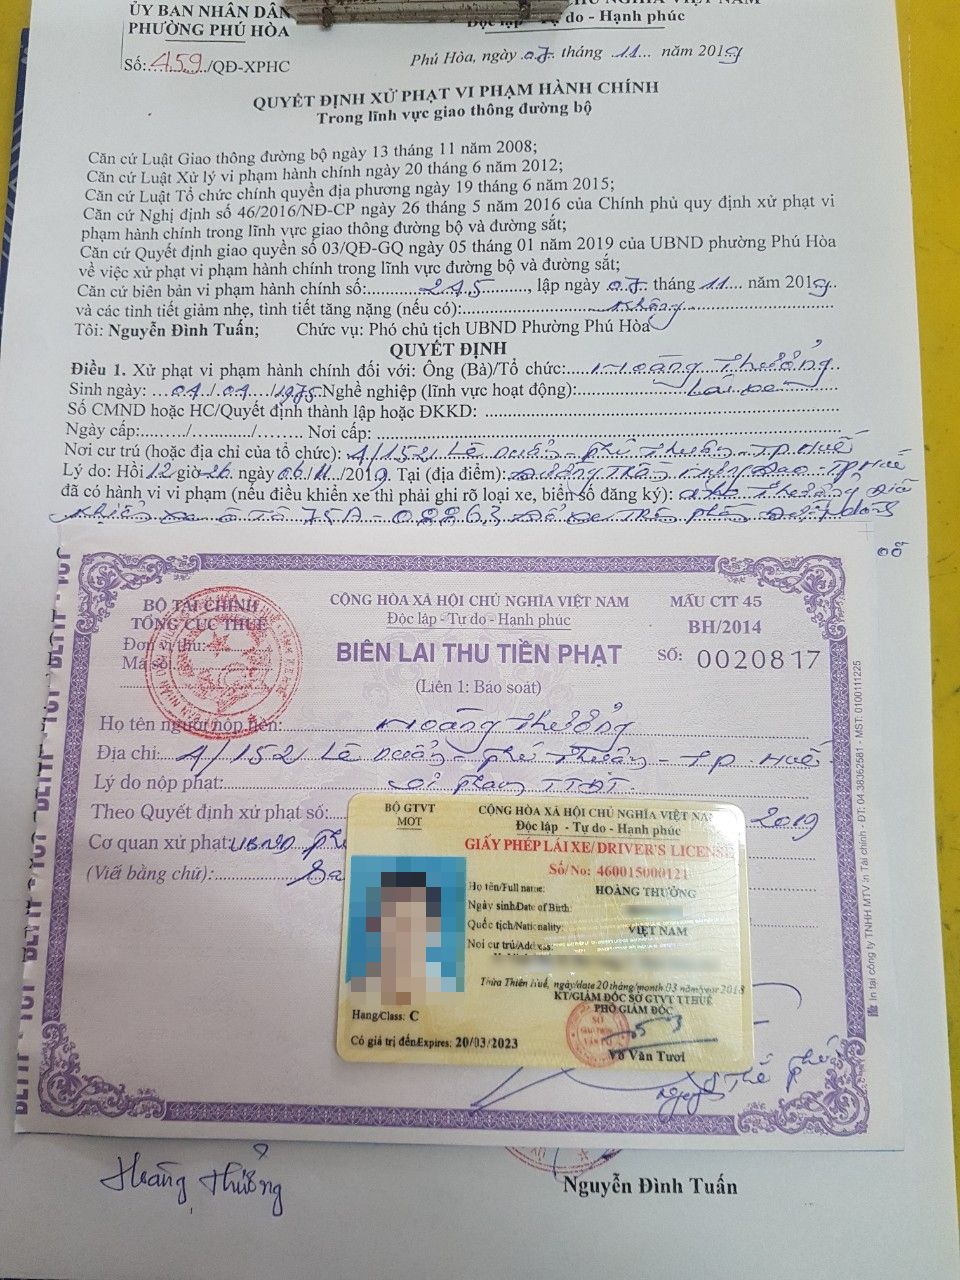 ỦY BAN NHÂN DÂN
PHƯỜNG PHÚ HÒA
Độc lập - Tự do - Hạnh phúc
Số: 459/QĐ-XPHC
Phú Hòa, ngày 07 tháng 11 năm 2019
QUYẾT ĐỊNH XỬ PHẠT VI PHẠM HÀNH CHÍNH
Trong lĩnh vực giao thông đường bộ
Căn cứ Luật Giao thông đường bộ ngày 13 tháng 11 năm 2008;
Căn cứ Luật Xử lý vi phạm hành chính ngày 20 tháng 6 năm 2012;
Căn cứ Luật Tổ chức chính quyền địa phương ngày 19 tháng 6 năm 2015;
Căn cứ Nghị định số 46/2016/NĐ-CP ngày 26 tháng 5 năm 2016 của Chính phủ quy định xử phạt vi
phạm hành chính trong lĩnh vực giao thông đường bộ và đường sắt;
Căn cứ Quyết định giao quyền số 03/QĐ-GQ ngày 05 tháng 01 năm 2019 của UBND phường Phú Hòa
về việc xử phạt vi phạm hành chính trong lĩnh vực đường bộ và đường sắt;
Căn cứ biên bản vi phạm hành chính số: 245, lập ngày 07 tháng 11 năm 2019
và các tình tiết giảm nhẹ, tình tiết tăng nặng (nếu có): không
Tôi: Nguyễn Đình Tuấn; Chức vụ: Phó chủ tịch UBND Phường Phú Hòa
QUYẾT ĐỊNH
Điều 1. Xử phạt vi phạm hành chính đối với: Ông (Bà)/Tổ chức: Hoàng Thưởng
Sinh ngày: 04/04/1975 Nghề nghiệp (lĩnh vực hoạt động): Lái xe
Số CMND hoặc HC/Quyết định thành lập hoặc ĐKKD:
Ngày cấp:....../....../...... Nơi cấp:
Nơi cư trú (hoặc địa chỉ của tổ chức): 4/152 Lê Duẩn - Phú Thuận - TP Huế
Lý do: Hồi 12 giờ 26 ngày 06/11/2019 Tại (địa điểm): Đường Trần Hưng Đạo - TP Huế
đã có hành vi vi phạm (nếu điều khiển xe thì phải ghi rõ loại xe, biển số đăng ký): anh Thưởng điều
khiển xe ô tô 75A - 02263 để xe trên phần đường
BỘ TÀI CHÍNH
TỔNG CỤC THUẾ
Đơn vị thu:
Mã số:
CỘNG HÒA XÃ HỘI CHỦ NGHĨA VIỆT NAM
Độc lập - Tự do - Hạnh phúc
MẪU CTT 45
BH/2014
BIÊN LAI THU TIỀN PHẠT
SỐ: 0020817
(Liên 1: Báo soát)
Họ tên người nộp tiền: Hoàng Thưởng
Địa chỉ: 4/152 Lê Duẩn - Phú Thuận - TP Huế
Lý do nộp phạt: Vi phạm TTĐT
Theo Quyết định xử phạt số: 2019
Cơ quan xử phạt: UBND
(Viết bằng chữ):
In tại công ty TNHH MTV In Tài chính - ĐT: 04.38362581 - MST: 0100111225
BỘ GTVT
MOT
CỘNG HÒA XÃ HỘI CHỦ NGHĨA VIỆT NAM
Độc lập - Tự do - Hạnh phúc
GIẤY PHÉP LÁI XE/DRIVER'S LICENSE
Số/No: 460015000121
Họ tên/Full name: HOÀNG THƯỞNG
Ngày sinh/Date of Birth:
Quốc tịch/Nationality: VIỆT NAM
Nơi cư trú/Address:
Thừa Thiên Huế, ngày/date 20 tháng/month 03 năm/year 2018
KT/GIÁM ĐỐC SỞ GTVT TTHUẾ
PHÓ GIÁM ĐỐC
Hạng/Class: C
Có giá trị đến/Expires: 20/03/2023
Võ Văn Tươi
Hoàng Thưởng
Nguyễn Đình Tuấn